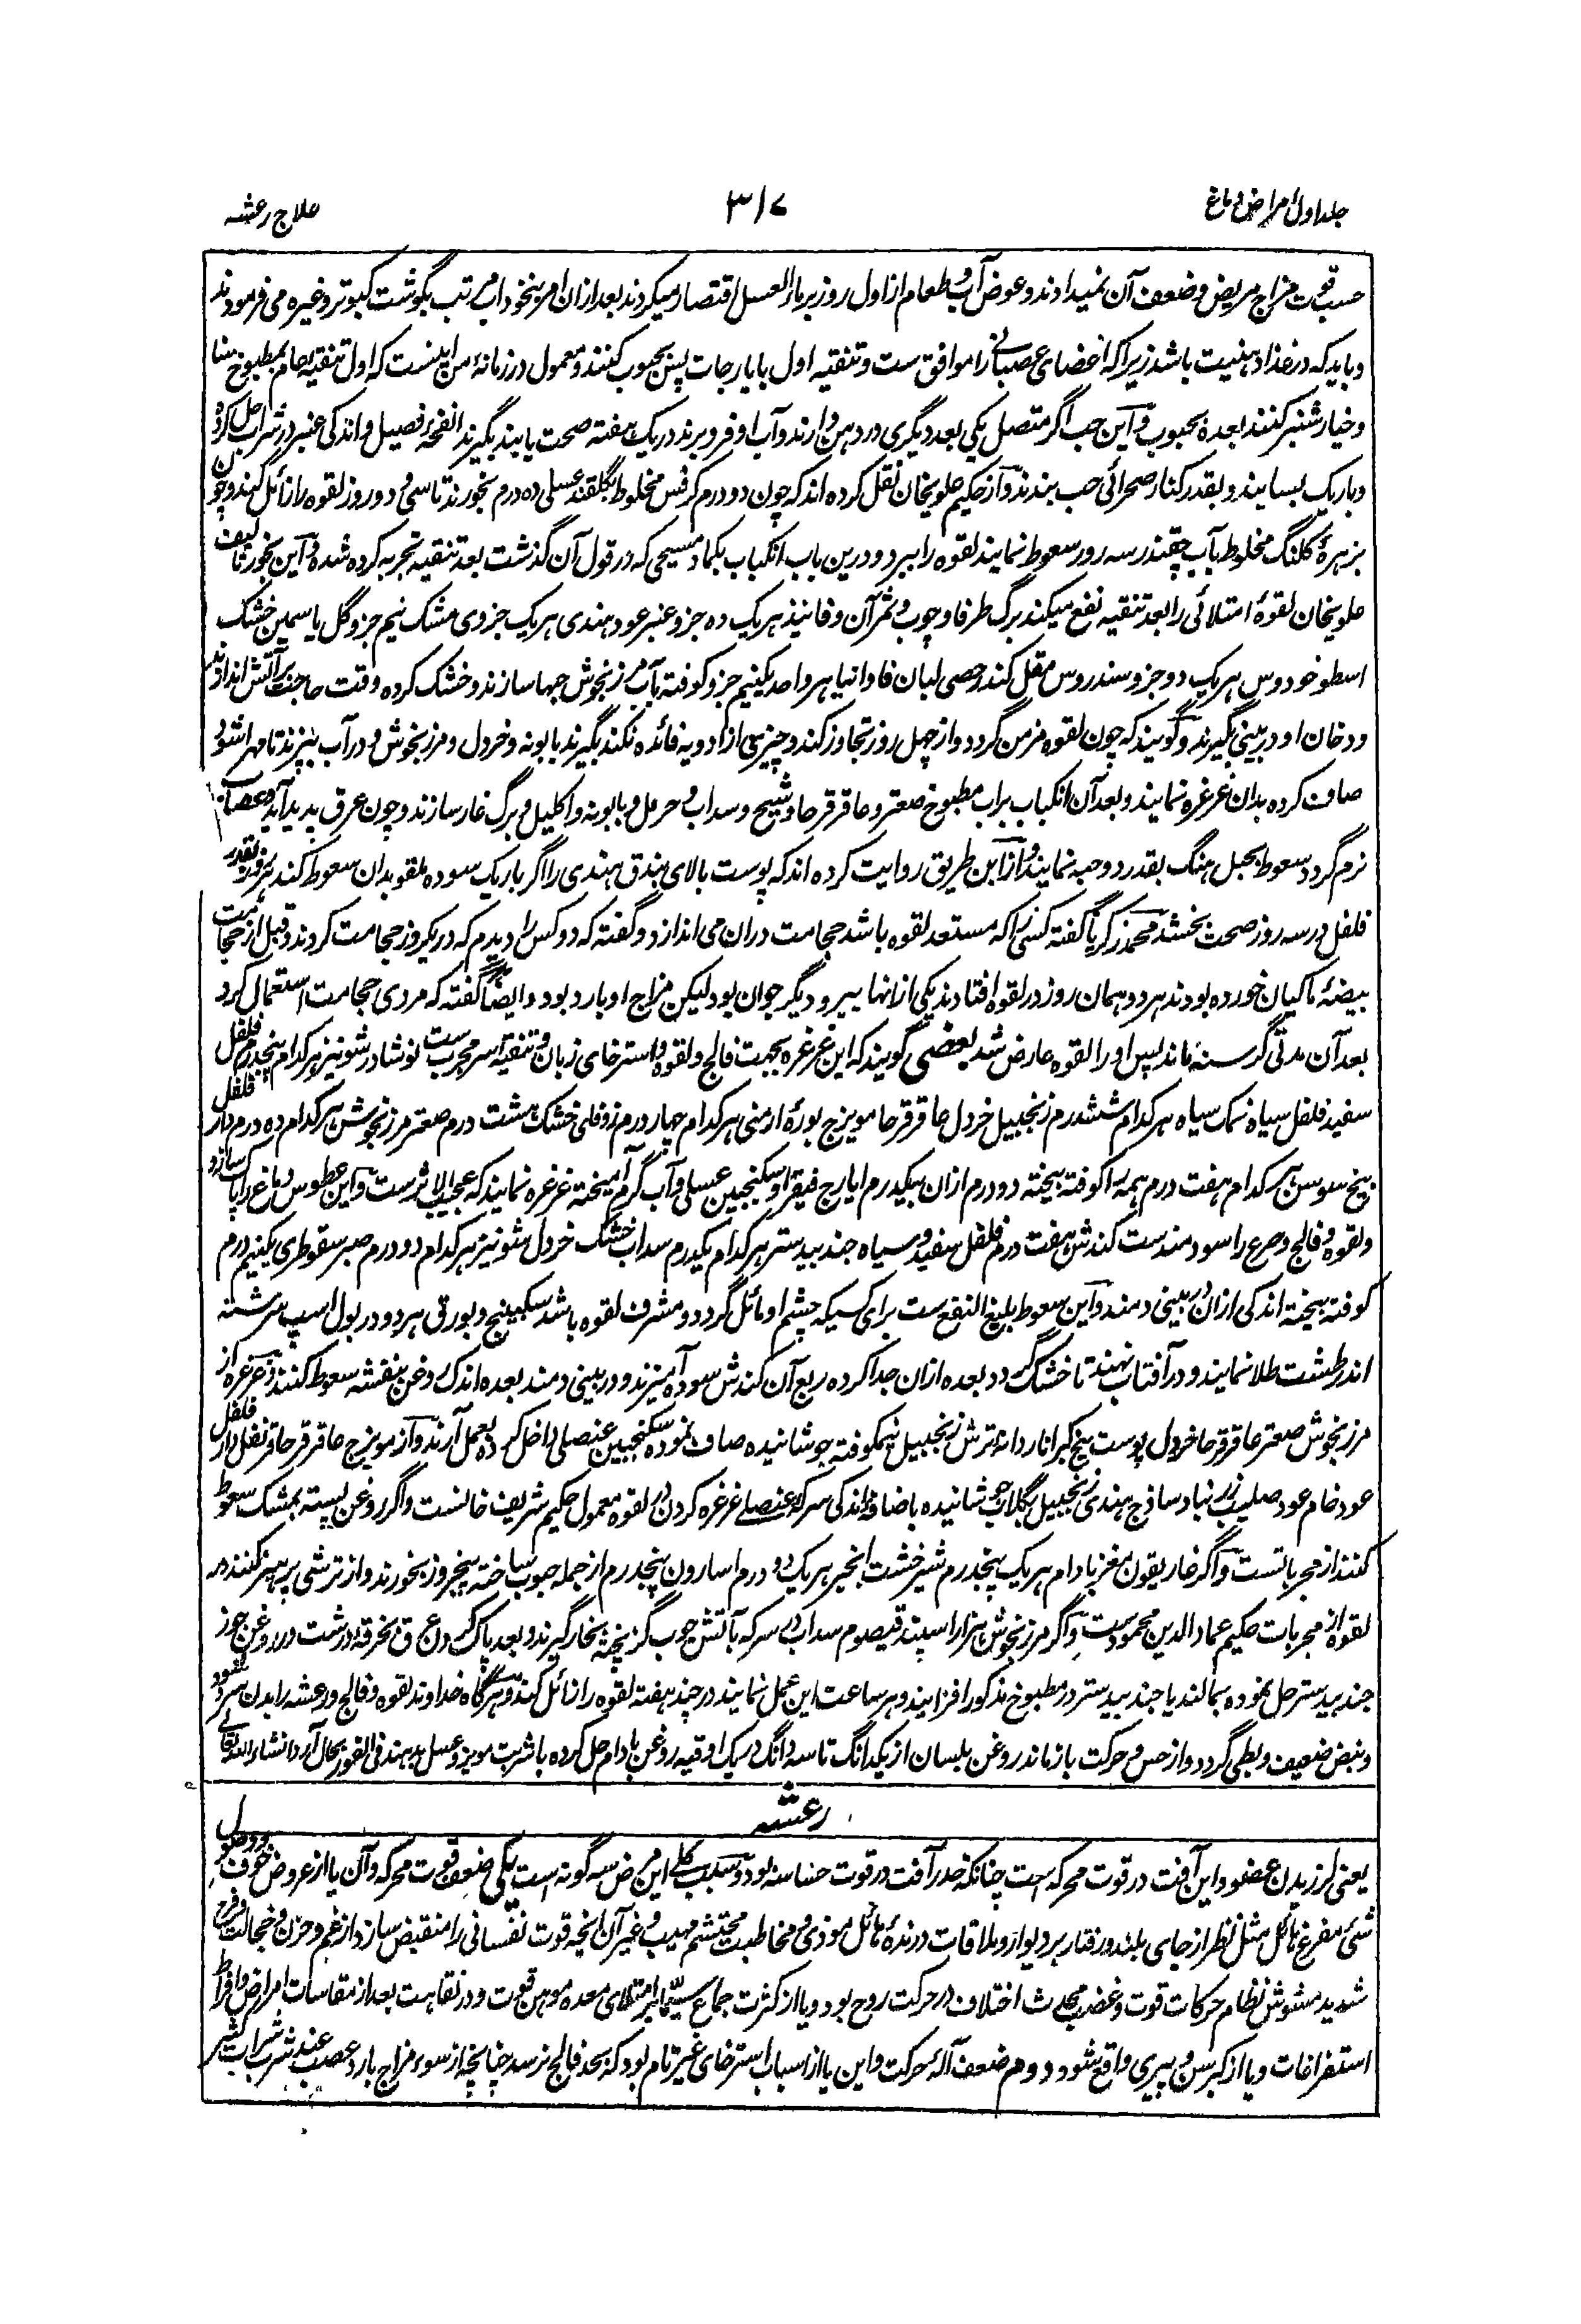 جلد اول امراض دماغ
۳۱۷
علاج رعشه
حسب قوت مزاج مریض و ضعف آن نمیدادند و عوض آب و طعام از اول روز بر ماء العسل اقتصار میکردند بعد ازان امر بنخوداب مرتب بگوشت کبوتر و غیره می فرمودند
و باید که در غذا دهنیت باشد زیرا که اعضای عصبانی را موافق ست و تنقیه اول بایارجات پس بحبوب کنند و معمول در زمانهٔ من اینست که اول تنقیه عام بمطبوخ سنا
و خیارشنبر کنند بعده بحبوب و این حب اگر متصل یکی بعد دیگری در دهن دارند و آب او فرو برند در یک هفته صحت یابند بگیرند انفحه بز فصیل و اندکی عنبر در شراب حل کرده
و باریک بسایند و بقدر کنار صحرائی حب بندند و از حکیم علویخان نقل کرده اند که چون دو درم کرفس مخلوط بگلقند عسلی ده درم بخورند تا سی و دو روز لقوه را زائل کند و چون
بزهرهٔ کلنگ مخلوط بآب چقندر سه روز سعوط نمایند لقوه را ببرد و درین باب انکباب بکماد مسیحی که در قول آن گذشت بعد تنقیه تجربه کرده شده و این بخور تالیف
علویخان لقوهٔ امتلائی را بعد تنقیه نفع میکند برگ طرفا و چوب و ثمر آن و فانیذ هر یک ده جزو عنبر عود هندی هر یک جزوی مشک نیم جزو گل یاسمین خشک
اسطوخودوس هر یک دو جزو سندروس مقل کندر حصی لبان فاوانیا هر واحد یکنیم جزو کوفته بآب مرزنجوش حبها سازند و خشک کرده وقت حاجت بر آتش اندازند
و دخان او در بینی بگیرند و گویند که چون لقوه مزمن گردد و از چهل روز تجاوز کند و چیزی از ادویه فائده نکند بگیرند بابونه و خردل و مرزنجوش و در آب بپزند تا مهرا شود
صاف کرده بدان غرغره نمایند و بعد آن انکباب براب مطبوخ صعتر و عاقرقرحا و شیح و سداب و حرمل و بابونه و اکلیل و برگ غار سازند و چون عرق پدید آید و عصاب
نرم گردد سعوط بجبل هنگ بقدر دو حبه نمایند و از ابن طریق روایت کرده اند که پوست بالای بندق هندی را اگر باریک سوده ملقو بدان سعوط کند هر روز بقدر
فلفل در سه روز صحت بخشد محمد زکریا گفته کسی را که مستعد لقوه باشد حجامت دران می اندازد و گفته که دو کس را دیدم که در یکروز حجامت کردند و قبل از حجامت
بیضهٔ ماکیان خورده بودند هر دو همان روز در لقوه افتادند یکی ازانها پیر و دیگر جوان بود لیکن مزاج او بارد بود و ایضاً گفته که مردی حجامت استعمال کرد
بعد آن مدتی گرسنه ماند پس او را لقوه عارض شد بعضی گویند که این غرغره بجهت فالج و لقوه و استرخای زبان و تنقیه سر مجرب ست نوشادر شونیز هر کدام پنجدرم فلفل
سفید فلفل سیاه نمک سیاه هر کدام ششدرم زنجبیل خردل عاقرقرحا مویزج بورهٔ ارمنی هر کدام چهار درم زوفای خشک هشت درم صعتر مرزنجوش هر کدام ده درم دار فلفل
بیخ سوسن هر کدام هفت درم همه را کوفته بیخته دو درم ازان بیکدرم ایارج فیقرا و سکنجبین عسلی و آب گرم آمیخته غرغره نمایند که عجیب الاثرست و این عطوس دماغ را پاک سازد
و لقوه و فالج و صرع را سودمندست کندش هفت درم فلفل سفید و سیاه جندبیدستر هر کدام یکدرم سداب خشک خردل شونیز هر کدام دو درم صبر سقوطری یکنیم درم
کوفته بیخته اندکی ازان در بینی دمند و این سعوط بلیغ النفع ست برای کسیکه چشم او مائل گردد و مشرف لقوه باشد سکبینج و بورق هر دو در بول اسپ سرشته
اندر طشت طلا نمایند و در آفتاب نهند تا خشک گردد بعده ازان جدا کرده ربع آن کندش سوده آمیزند و در بینی دمند بعده اندک روغن بنفشه سعوط کنند و غرغره از
مرزنجوش صعتر عاقرقرحا خردل پوست بیخ کبر انار دانهٔ ترش زنجبیل نیمکوفته جوشانیده صاف نموده سکنجبین عنصلی داخل کرده بعمل آرند و از مویزج عاقرقرحا قرنفل دار فلفل
عود خام عود صلیب زرنباد ساذج هندی زنجبیل بگلاب جوشانیده باضافه اندکی سرکه عنصلی غرغره کردن در لقوه معمول حکیم شریف خانست و اگر روغن پسته بمشک سعوط
کنند از مجرباتست و اگر غاریقون مغز بادام هر یک پنجدرم شیرخشت انجیر هر یک دو درم اسارون پنجدرم از جمله حبوب ساخته پنجروز بخورند و از ترشی پرهیز کنند در
لقوه از مجربات حکیم عماد الدین محمودست و اگر مرزنجوش هزار اسپند قیصوم سداب در سرکه بآتش چوب گز پخته بخار گیرند و بعد پاک کردن عرق بخرقه درشت در روغن جوز
جندبیدستر حل نموده بمالند یا جندبیدستر در مطبوخ مذکور افزایند و هر ساعت این عمل نمایند در چند هفته لقوه را زائل کند و هرگاه خداوند لقوه و فالج و رعشه را بدن سرد شود
و نبض ضعیف و بطی گردد و از حس و حرکت باز ماند روغن بلسان از یکدانگ تا سه دانگ در یک اوقیه روغن بادام حل کرده با شربت مویز و عسل بدهند فی الفور بحال آرد انشاء الله تعالی
رعشه
یعنی لرزیدن عضو و این آفت در قوت محرکه است چنانکه خدر آفت در قوت حساسه بود و سبب کلی این مرض سه گونه است یکی ضعف قوت محرکه و آن یا از عروض خوف و وصول
شئ مفزع هائل مثل نظر از جای بلند و رفتار بر دیوار و ملاقات درندهٔ هائل موذی و مخاطبت محتشم مهیب و غیر آن آنچه قوت نفسانی را منقبض سازد از غم و حزن و خجالت و فرح
شدید مشوش نظام حرکات قوت و غضب محدث اختلاف در حرکت روح بود و یا از کثرت جماع سیما بر امتلای معده موهن قوت و در نقاهت بعد از مقاسات امراض و افراط
استفراغات و یا از کبر سن و پیری واقع شود و دوم ضعف آلهٔ حرکت و این یا از اسباب استرخای غیر تام بود که بحد فالج نرسد چنانچه از سوء مزاج بارد عصب عند شرب شراب کثیر